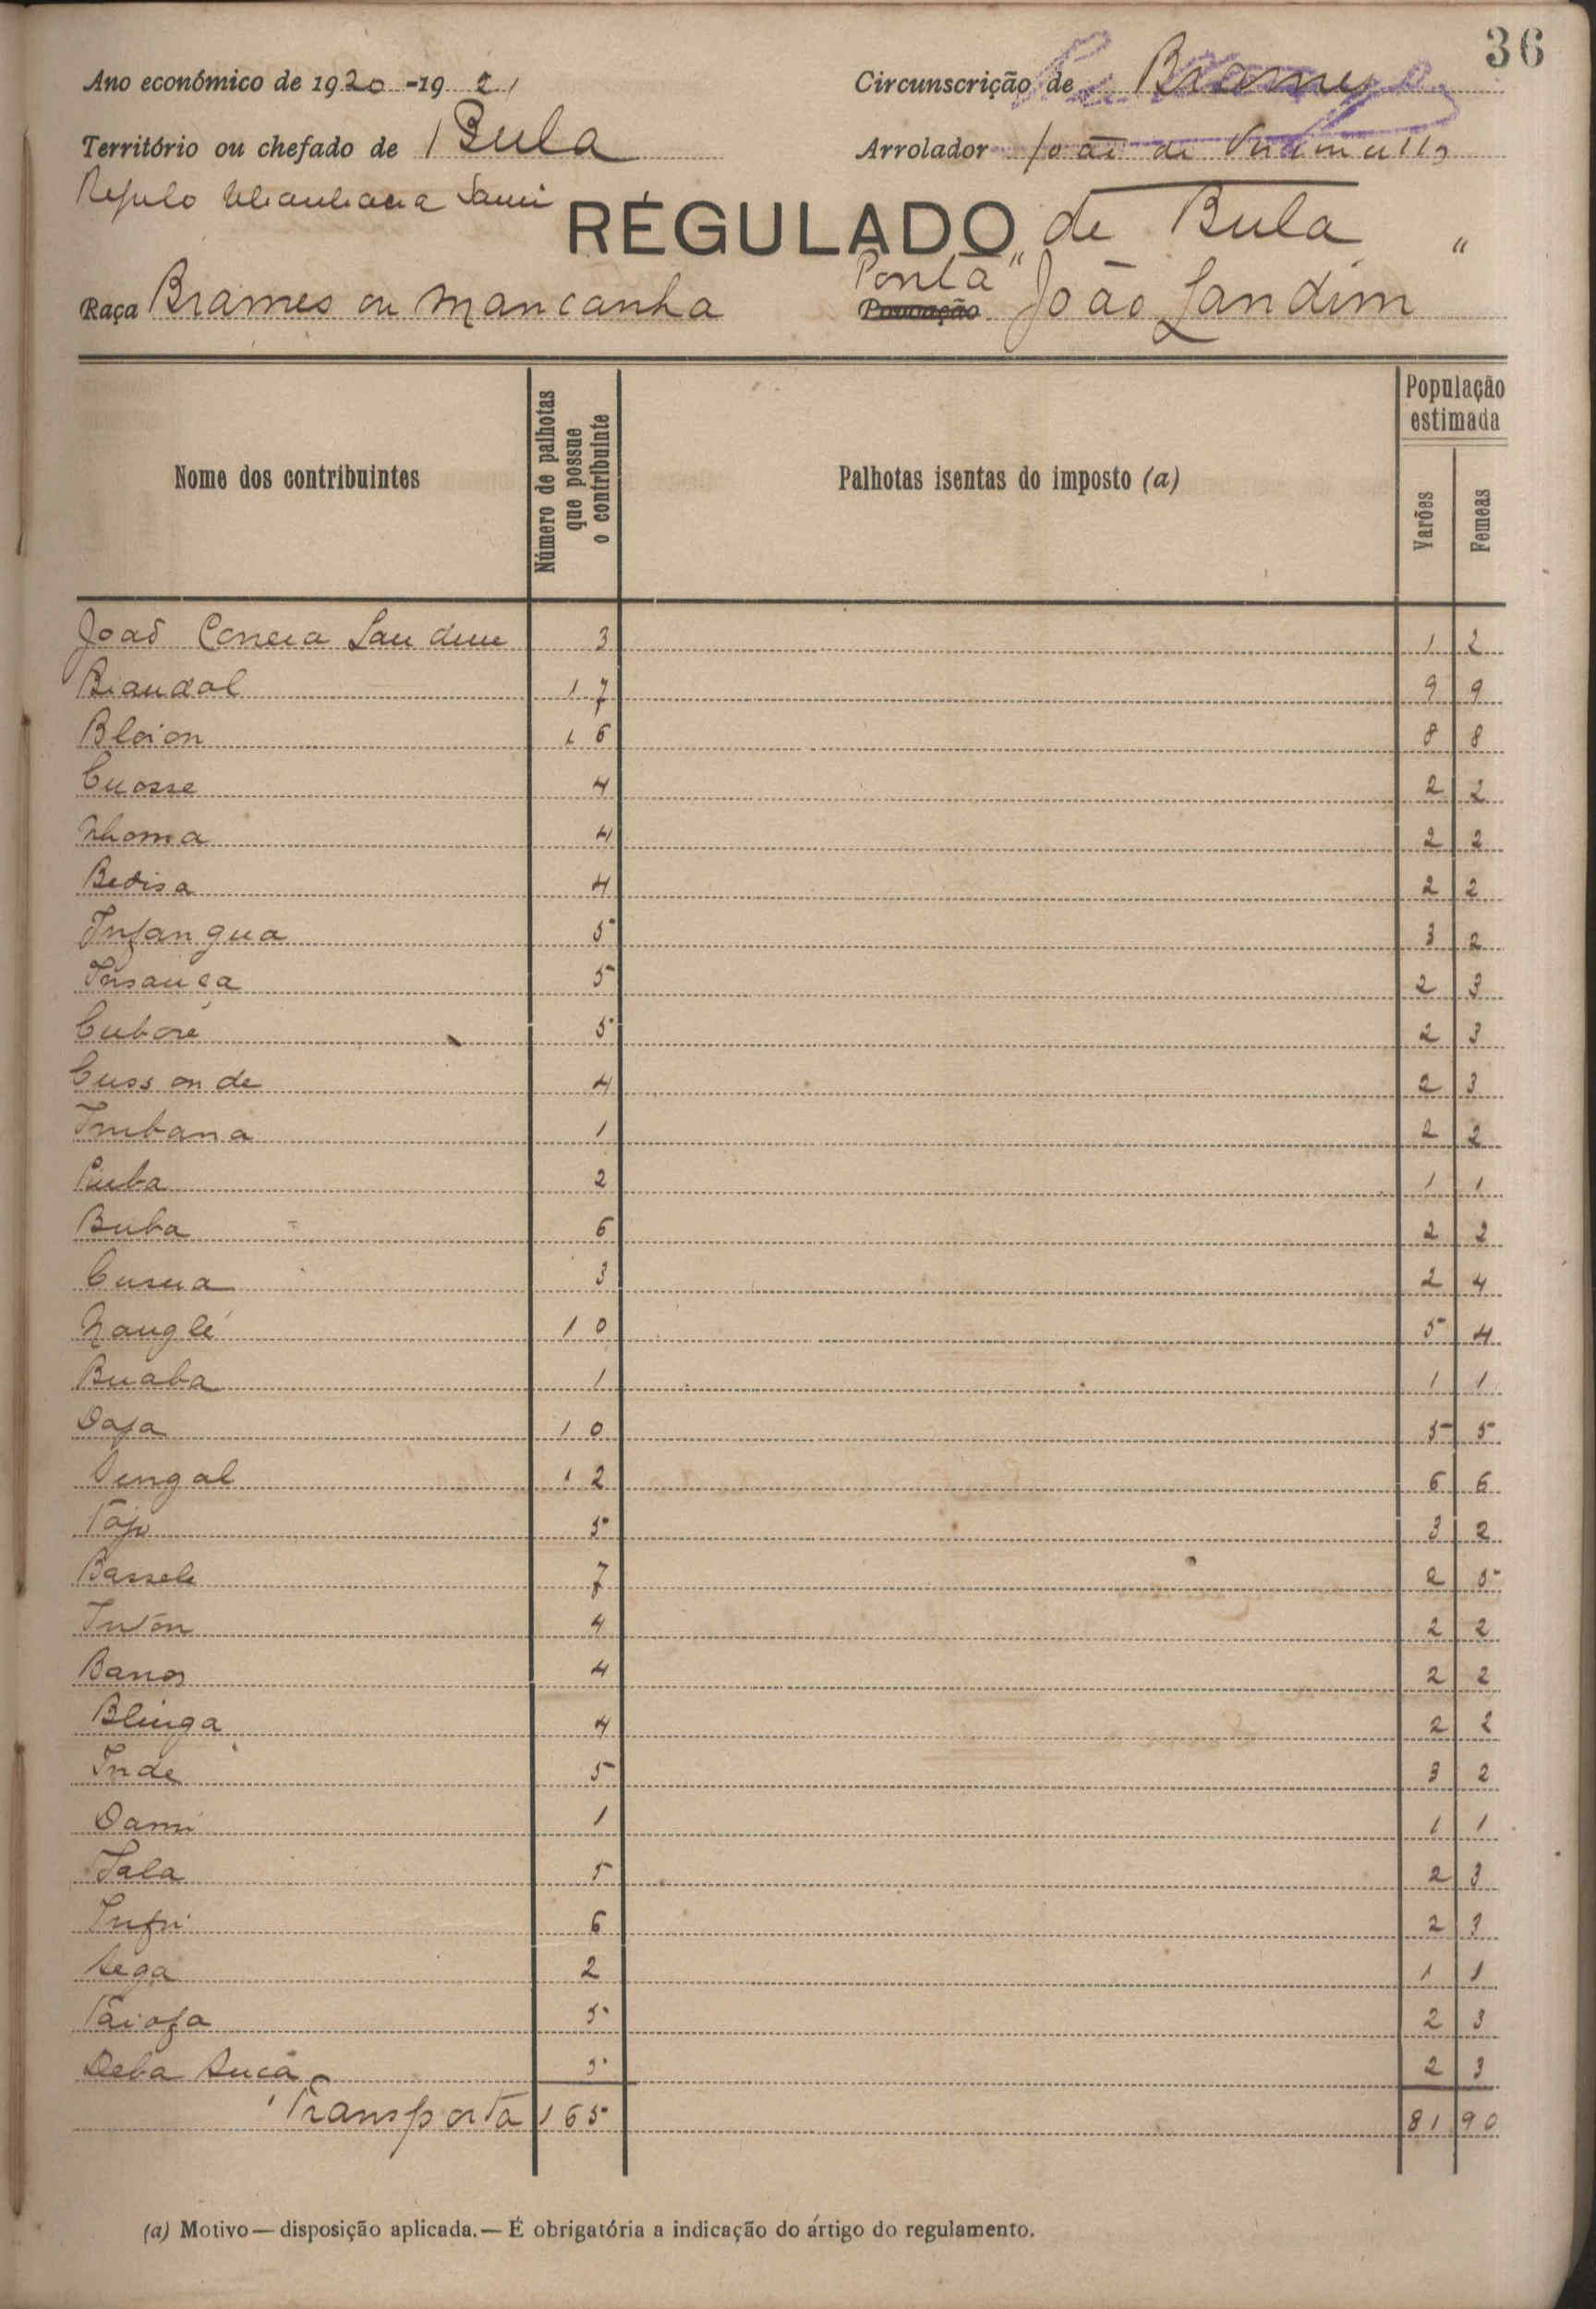 36
Ano económico de 1920-1921
Circunscrição de Brames
Território ou chefado de Bula
Arrolador João de
Regulo
REGULADO de Bula "
Raça Brames ou Mancanha
Ponta "
Povoação João Landim
Nome dos contribuintes
Número de palhotas que possue o contribuinte
Palhotas isentas do imposto (a)
População estimada
Varões
Femeas
João Correia Landim 3 1 2
Biandal 17 9 9
Bloion 16 8 8
Cuosse 4 2 2
Nhoma 4 2 2
Bedisa 4 2 2
Infangua 5 3 2
Insança 5 2 3
Cuboré 5 2 3
Cussonde 4 2 3
Imbana 1 2 2
Cuba 2 1 1
Buba 6 2 2
Cusua 3 2 4
Nanglé 10 5 4
Buaba 1 1 1
Dafa 10 5 5
Dingal 12 6 6
5 3 2
Bassele 7 2 5
4 2 2
4 2 2
Blinga 4 2 2
Inde 5 3 2
Dami 1 1 1
Tala 5 2 3
Infri 6 2 3
2 1 1
5 2 3
Deba 5 2 3
Transporta 165 81 90
(a) Motivo — disposição aplicada. — É obrigatória a indicação do ártigo do regulamento.